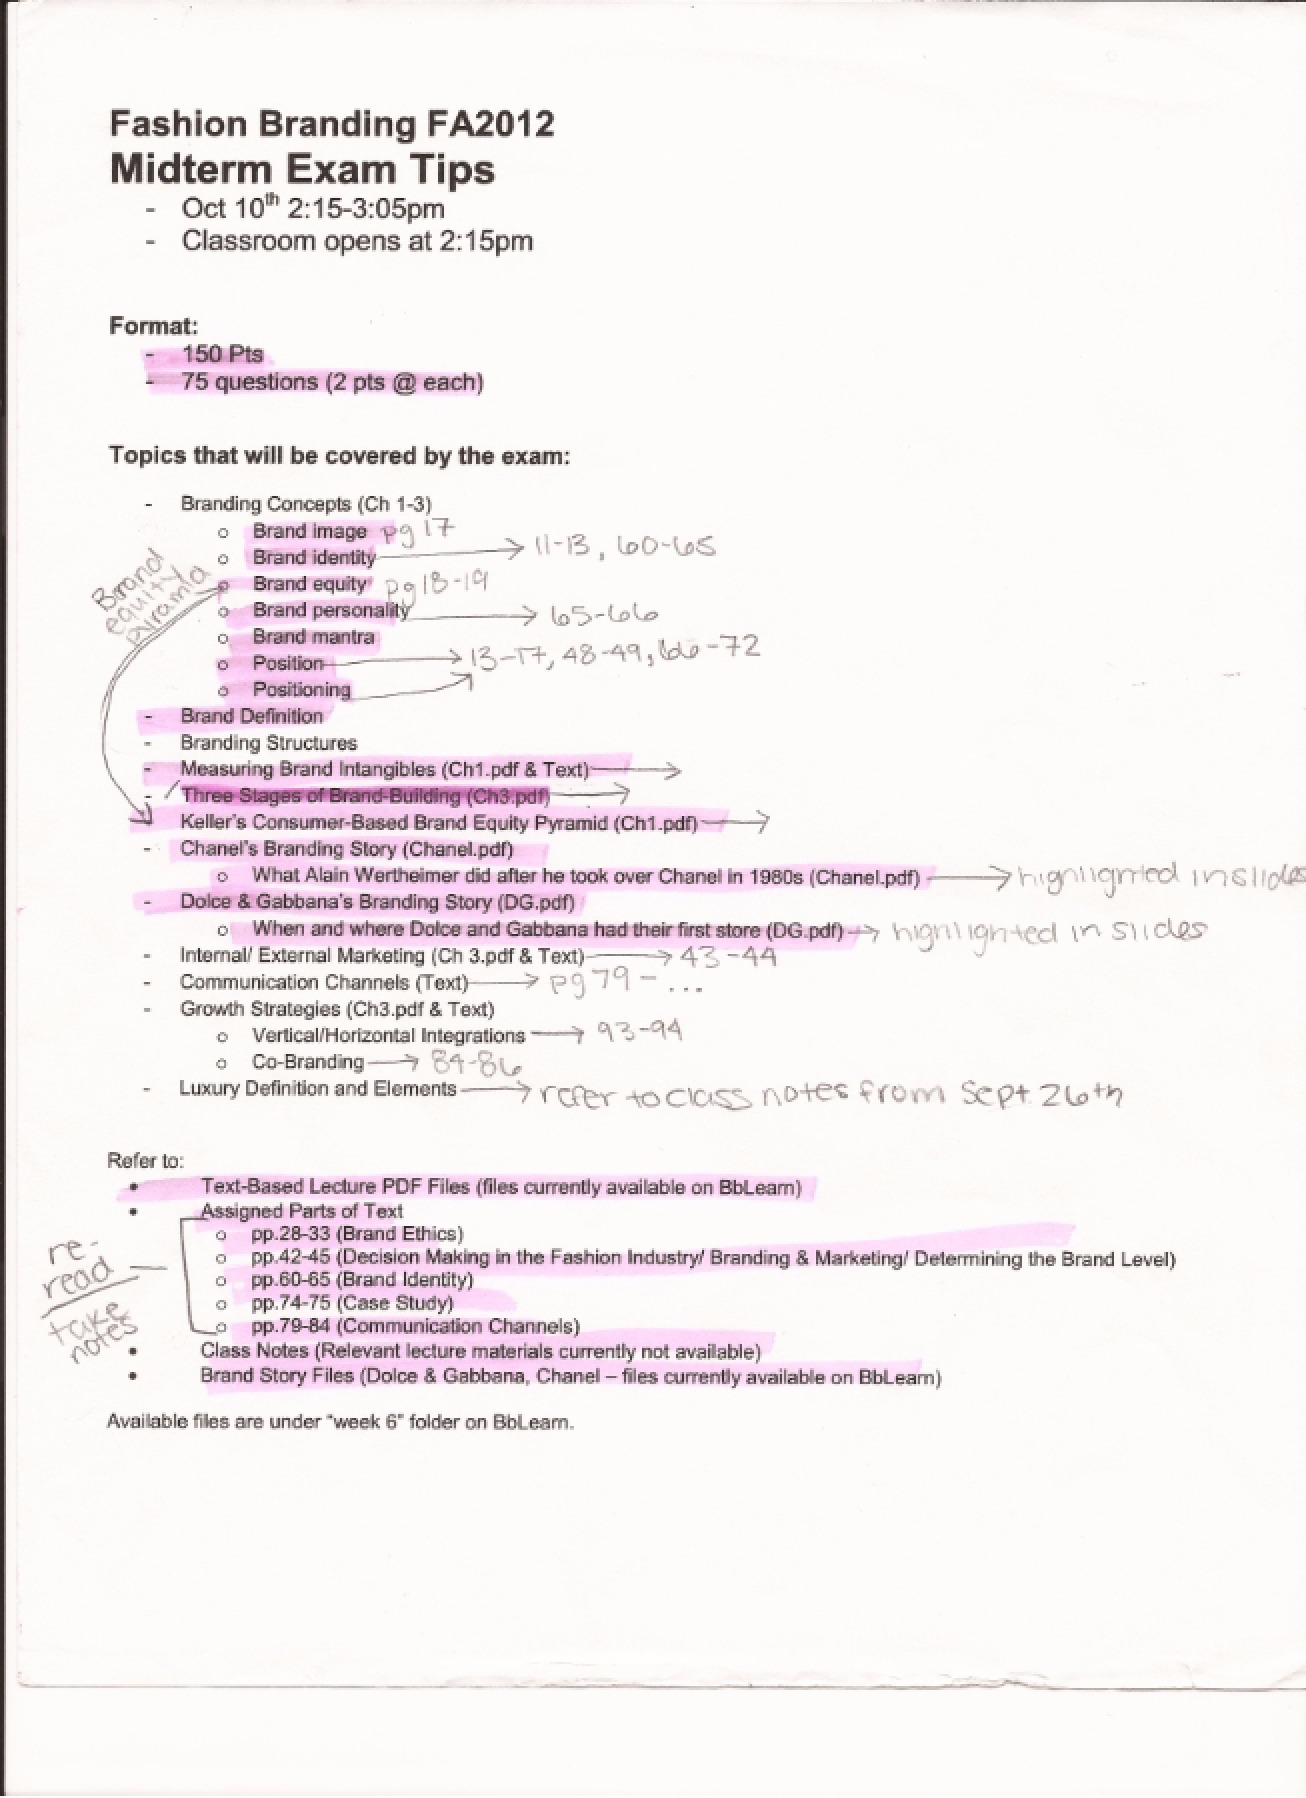 Fashion Branding FA2012
Midterm Exam Tips
- Oct 10th 2:15-3:05pm
- Classroom opens at 2:15pm
Format:
- 150 Pts
- 75 questions (2 pts @ each)
Topics that will be covered by the exam:
- Branding Concepts (Ch 1-3)
o Brand image pg 17
o Brand identity → 11-13, 60-65
Brand equity pyramid
o Brand equity pg 18-19
o Brand personality → 65-66
o Brand mantra
o Position → 13-17, 48-49, 66-72
o Positioning
- Brand Definition
- Branding Structures
- Measuring Brand Intangibles (Ch1.pdf & Text) →
- Three Stages of Brand-Building (Ch3.pdf) →
- Keller's Consumer-Based Brand Equity Pyramid (Ch1.pdf) →
- Chanel's Branding Story (Chanel.pdf)
o What Alain Wertheimer did after he took over Chanel in 1980s (Chanel.pdf) → highlighted in slides
- Dolce & Gabbana's Branding Story (DG.pdf)
o When and where Dolce and Gabbana had their first store (DG.pdf) → highlighted in slides
- Internal/ External Marketing (Ch 3.pdf & Text) → 43-44
- Communication Channels (Text) → pg 79 - ...
- Growth Strategies (Ch3.pdf & Text)
o Vertical/Horizontal Integrations → 93-94
o Co-Branding → 84-86
- Luxury Definition and Elements → refer to class notes from Sept 26th
Refer to:
• Text-Based Lecture PDF Files (files currently available on BbLearn)
• Assigned Parts of Text
o pp.28-33 (Brand Ethics)
re-read
take notes
o pp.42-45 (Decision Making in the Fashion Industry/ Branding & Marketing/ Determining the Brand Level)
o pp.60-65 (Brand Identity)
o pp.74-75 (Case Study)
o pp.79-84 (Communication Channels)
• Class Notes (Relevant lecture materials currently not available)
• Brand Story Files (Dolce & Gabbana, Chanel – files currently available on BbLearn)
Available files are under "week 6" folder on BbLearn.